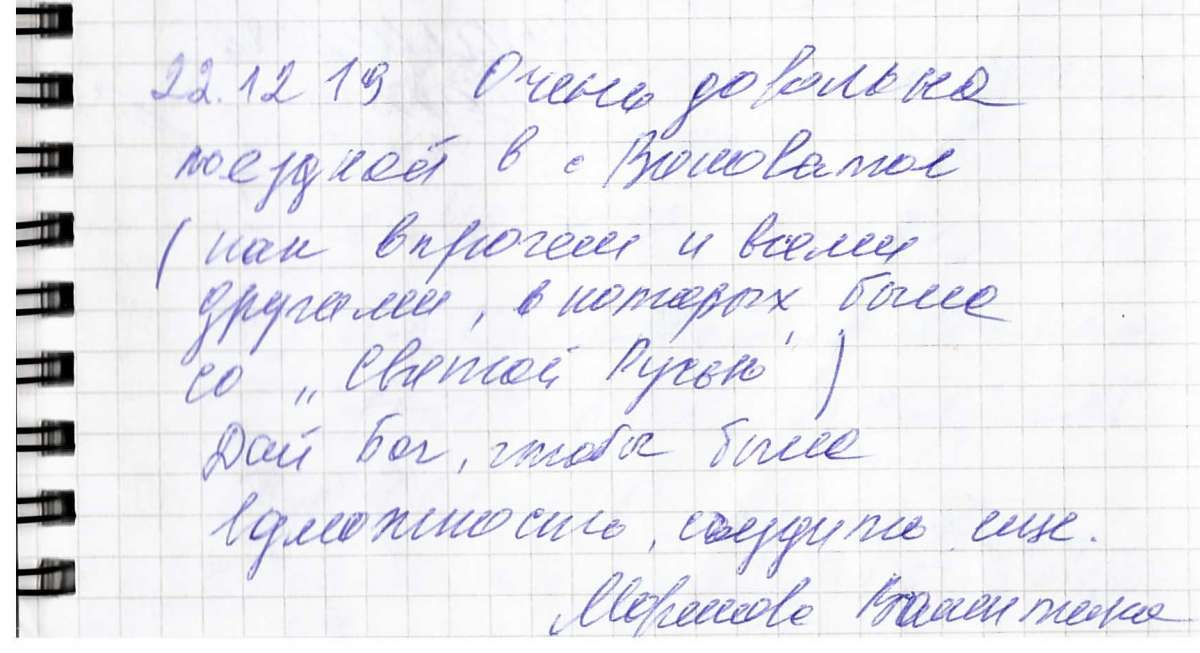 22.12 19 Очень довольна
поездкой в с
(как впрочем и всеми
другими, в которых была
со „Святой Русью")
Дай Бог, чтобы была
возможность, съездить еще.
Валентина